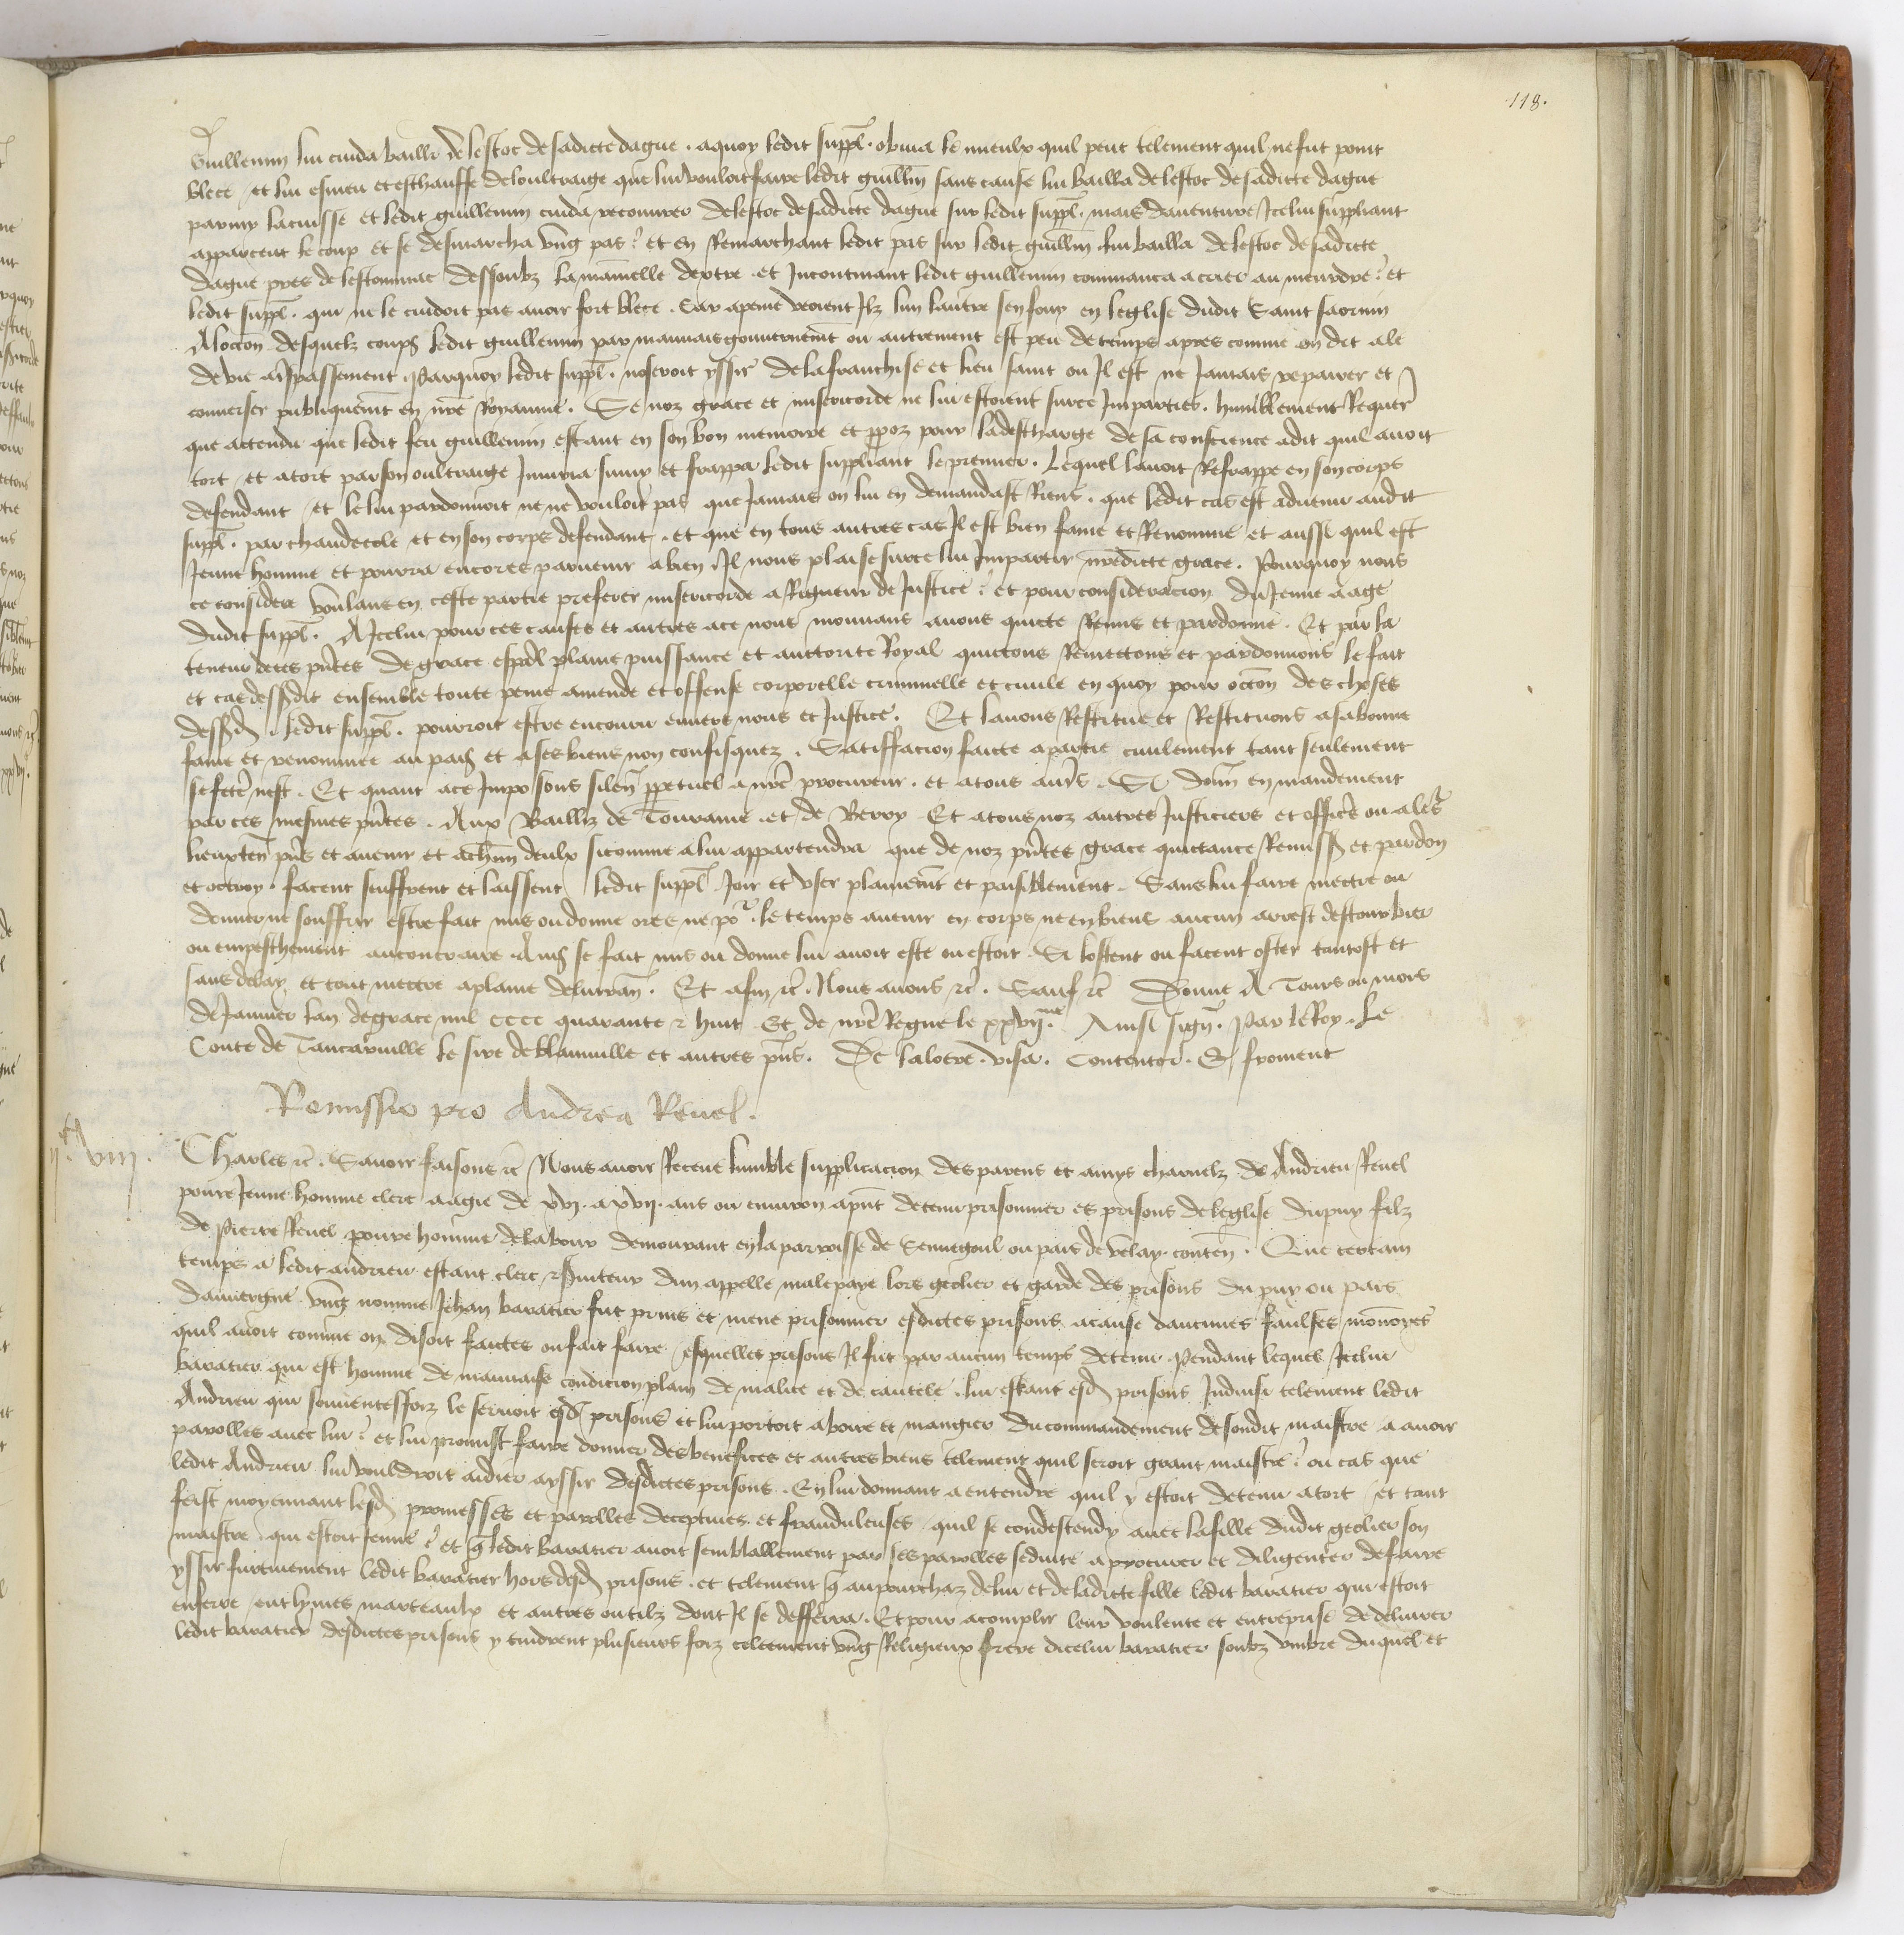 118.
Guillemin lui cuida bailler de lestoc de sadicte dague . aquoy ledit suppl. obvia le mieulx quil peut telement quil ne fut point
blece et lui esmeu et eschauffe deloultraige que lui vouloit faire ledit guillm sans cause lui bailla de lestoc de sadicte dague
parmy lacuisse et ledit guillemin cuida recouvrer delestoc desadicte dague sur ledit suppl. mais davanture Icelui suppliant
apparceut le coup et se desmarcha ung pas et en Remarchant ledit pas sur ledit guillm lui bailla de lestoc de sadicte
dague pres de lestommac dessoubz la mamelle dextre et Incontinant ledit guillemin commanca a crier au meurdre et
ledit suppl. qui ne le cuidoit pas avoir fort blece . Car apeine veoient Ilz lun lautre sen fouy en leglise dudit Saint saornin
Aloccon desquelz coups ledit guillemin par mauvais gouvernemt ou autrement est peu de temps apres comme on dit ale
de vie a trespassement . Parquoy ledit suppl. noseroit yssir de la franchise et lieu saint ou Il est ne Jamais repairer et
converser publiquemt en nre Royaume . Se noz grace et misericorde ne lui estoient surce Imparties . humblement Requer
que actendu que ledit feu guillemin estant en son bon memoire et ppoz pour ladescharge de sa conscience adit quil avoit
tort et atort par son oultraige Injuria suivy et frappa ledit suppliant le premier . Lequel lavoit Refrappe en son corps
defendant et le lui pardonnoit ne ne vouloit pas que Jamais on lui en demandast Riens . que ledit cas est advenu audit
suppl. par chaudecole et en son corps defendant . et que en tous autres cas Il est bien fame et Renomme et aussi quil est
Jeune homme et pourra encores parvenir a bien Il nous plaise surce lui Impartir nredicte grace . Pourquoy nous
ce considere voulans en ceste partie preferer misericorde a Rigueur de Justice et pour consideracion du Jeune aage
dudit suppl. A Icelui pour ces causes et autres ace nous mouvans avons quicte Remis et pardonne . Et par la
teneur deces pntes de grace espal plaine puissance et auctorite Royal quictons Remectons et pardonnons le fait
et cas dessdit ensemble toute peine amende et offense corporelle criminelle et civile en quoy pour occon des choses
dessd ledit suppl. pourroit estre encouru envers nous et Justice . Et lavons Restitue et Restituons asabonne
fame et renommee au pais et ases biens non confisquez . Satiffacion faicte apartie civilement tant seulement
se fcte nest . Et quant ace Imposons silence ppetuel a nre procureur . et atous autrs . Si donn en mandement
par ces mesmes pntes . Aux Bailliz de Touraine et de Berry Et atous noz autres Justiciers et officrs ou alers
lieuxten pns et avenir et achun deulx sicomme alui appartendra que de noz pntes grace quictance Remiss et pardon
et octroy . facent seuffrent et laissent ledit suppl Joir et user plainemt et paisiblement . Sans lui faire mectre ou
donner ne souffrir estre fait mis ou donne ores ne por le temps avenir en corps ne en biens aucun arrest destourbier
ou empeschement aucontraire Ains se fait mis ou donne lui avoit este ou estoit . Si lostent ou facent oster tantost et
sans delay et tout mectre aplaine delivran . Et afin &c . Nous avons &c . Sauf &c Donne A Tours ou mois
de Janvier lan de grace mil cccc quarante & huit Et de nre Regne le xxvijme Ainsi sign . Par le Roy . Le
Conte de Tancarville le sire de blainville et autres pns . De laloere . visa . Contentor . E froment
Remissio pro Andrea Revel .
Charles &c . Savoir faisons &c Nous avoir Receue lumble supplicacion des parens et amys charnelz de Andrieu Revel
povre Jeune homme clerc aagie de xvj . a xvij . ans ou environ apnt detenu prisonnier es prisons de leglise du puy filz
de Pierre Revel povre homme de labour demourant en la parroisse de Sennegoul ou pais de velay . conten . Que certain
temps a ledit andrieu estant clerc & sviteur dun appelle malepaye lors geolier et garde des prisons du puy ou pais
dauvergne ung nomme Jehan baratier fut prins et mene prisonnier esdictes prisons acause daucunes faulses monnoyes
quil avoit comme on disoit faictes ou fait faire esquelles prisons Il fut par aucun temps detenu . Pendant lequel Icelui
baratier qui est homme de mauvaise condicion plain de malice et de cautele . lui estant esd prisons Induisi telement ledit
Andrieu qui souventesfoiz le servoit esd prisons et lui portoit aboire et mangier du commandement de sondit maistre a avoir
parolles avec lui et lui promist faire donner des benefices et autres biens telement quil seroit grant maistre ou cas que
ledit Andrieu lui vouldroit aidier ayssir desdictes prisons . En lui donnant a entendre quil y estoit detenu atort et tant
feist moyennant lesd promesses et parolles deceptives et frauduleuses quil se condescendy avec lafille dudit geolier son
maistre qui estoit Jeune et q ledit baratier avoit semblablement par ses parolles seduite a procurer et diligenter de faire
yssir furtivement ledit baratier hors desd prisons . et telement q aupourchaz delui et de ladicte fille ledit baratier qui estoit
enferre eut lymes marteaulx et autres outilz dont Il se defferra . Et pour acomplir leur voulente et entreprise de delivrer
ledit baratier desdictes prisons y vindrent plusieurs foiz celeement ung Religieux frere dicelui baratier soubz umbre duquel et